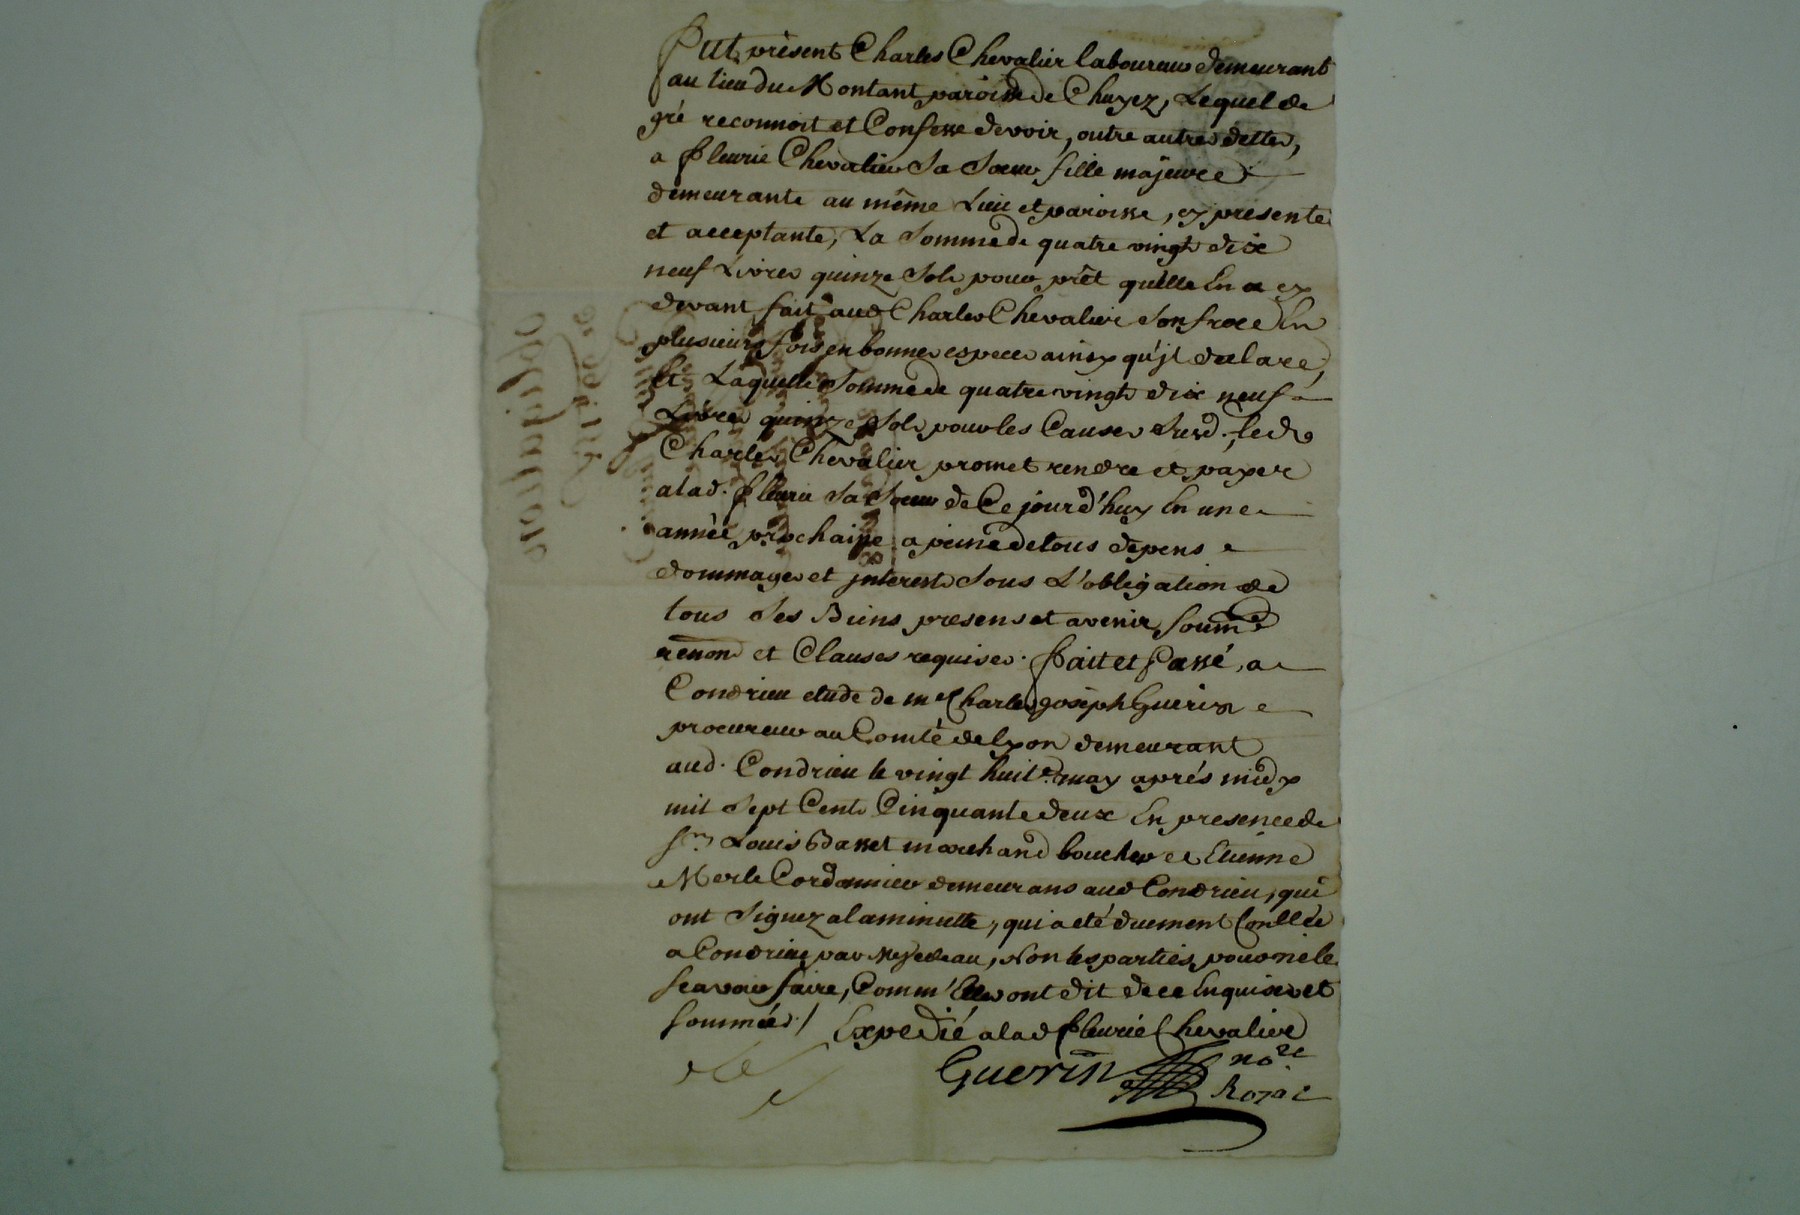 Fut présent Charles Chevalier laboureur demeurant
au lieu du Montant paroisse de Chuyez, Lequel de
gré reconnoit et Confesse devoir, outre autres dettes,
a Fleurie Chevalier Sa Sœur fille majeure
demeurante au même Lieu et paroisse, cy presente
et acceptante, La Somme de quatre vingt dix
neuf Livres quinze Sols pour prêt qu'elle En a cy
devant fait aud Charles Chevalier Son frere En
plusieurs fois en bonnes especes ainsy qu'il declare,
Et Laquelle Somme de quatre vingt dix neuf
Livres quinze Sols pour les Causes Susd. led
Charles Chevalier promet rendre et payer
a lad. Fleurie Sa Sœur de Ce jourd'huy En une
année prochaine a peine de tous depens
dommages et interests Sous L'obligation de
tous Ses Biens presens et avenir, Soum
renon et Clauses requises. Fait et Passé, a
Condrieu etude de me Charles Joseph Guerin
procureur au Comté de Lyon demeurant
aud. Condrieu le vingt huit may aprés midy
mil Sept Cent Cinquante deux En presence de
Sr Louis Basset marchand boucher et Etienne
Merle Cordonnier demeurans aud Condrieu, qui
ont Signez a la minutte, qui a eté duement Conllée
a Condrieu par, Non les parties pour ne le
scavoir faire, Comm'Elles ont dit de ce Enquises et
Sommées./ Expedié a lad Fleurie Chevalier
Guerin nore
Royal
obligation